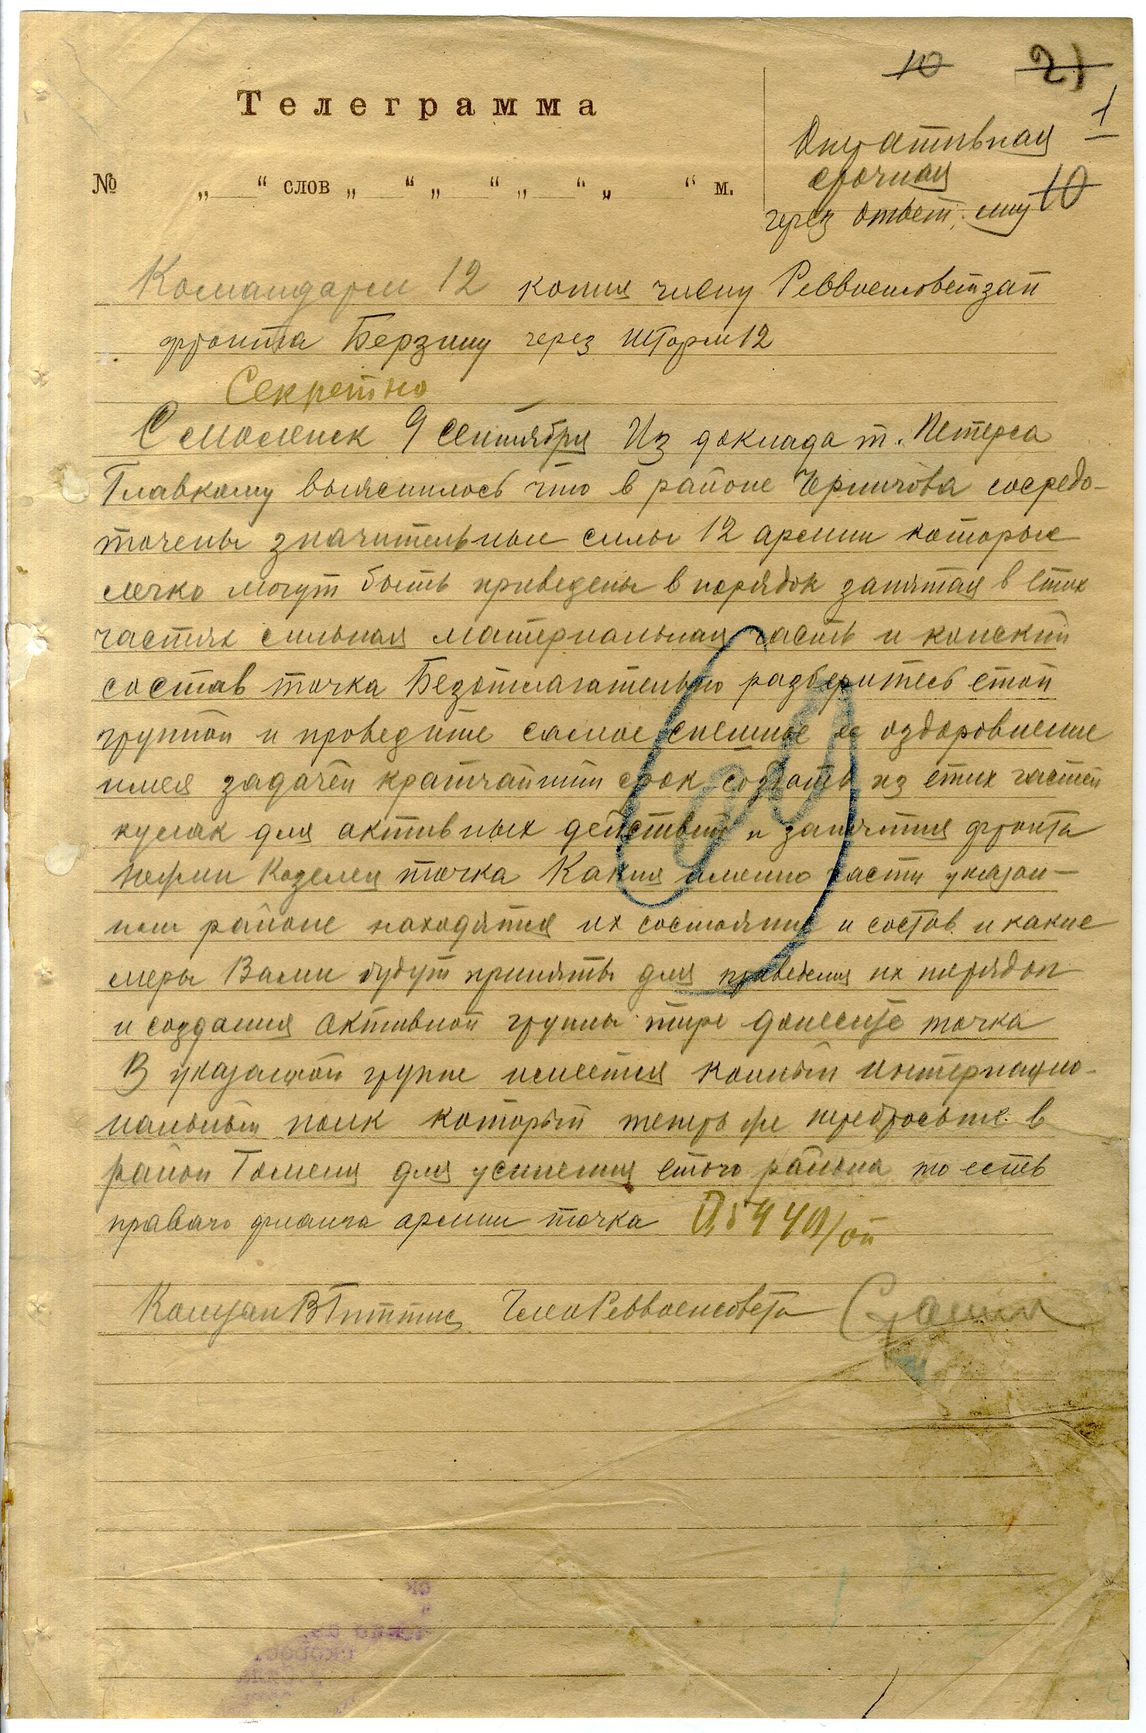 10 21
Телеграмма
1
Оперативная
срочная
№ „ “ слов „ “ „ “ „ “ „ “ м.
10
через ответ.
Командарм 12 копия члену Реввоенсоветзап
фронта Берзину через Штарм 12
Секретно
Смоленск 9 сентября Из доклада т. Петерса
Главкому выяснилось что в районе Чернигова сосредо-
точены значительные силы 12 армии которые
легко могут быть приведены в порядок в етих
частях сильная материальная часть и конский
состав точка Безотлагательно разберитесь етой
группой и проведите самое спешное ее оздоровление
имея задачей кратчайший срок создать из етих частей
кулак для активных действий и занятия фронта
Нежин Козелец точка Какия именно части указан-
ном районе находятся их состояние и состав и какие
меры Вами будут приняты для приведения их порядок
и создания активной группы тире донесите точка
В указаной групе имеется конный интернацио-
нальный полк который теперь же перебросьте в
район Гомеля для усиления етого района то есть
праваго фланга армии точка 0544 оп
Комзап В Гиттис Член Реввоенсовета Сталин